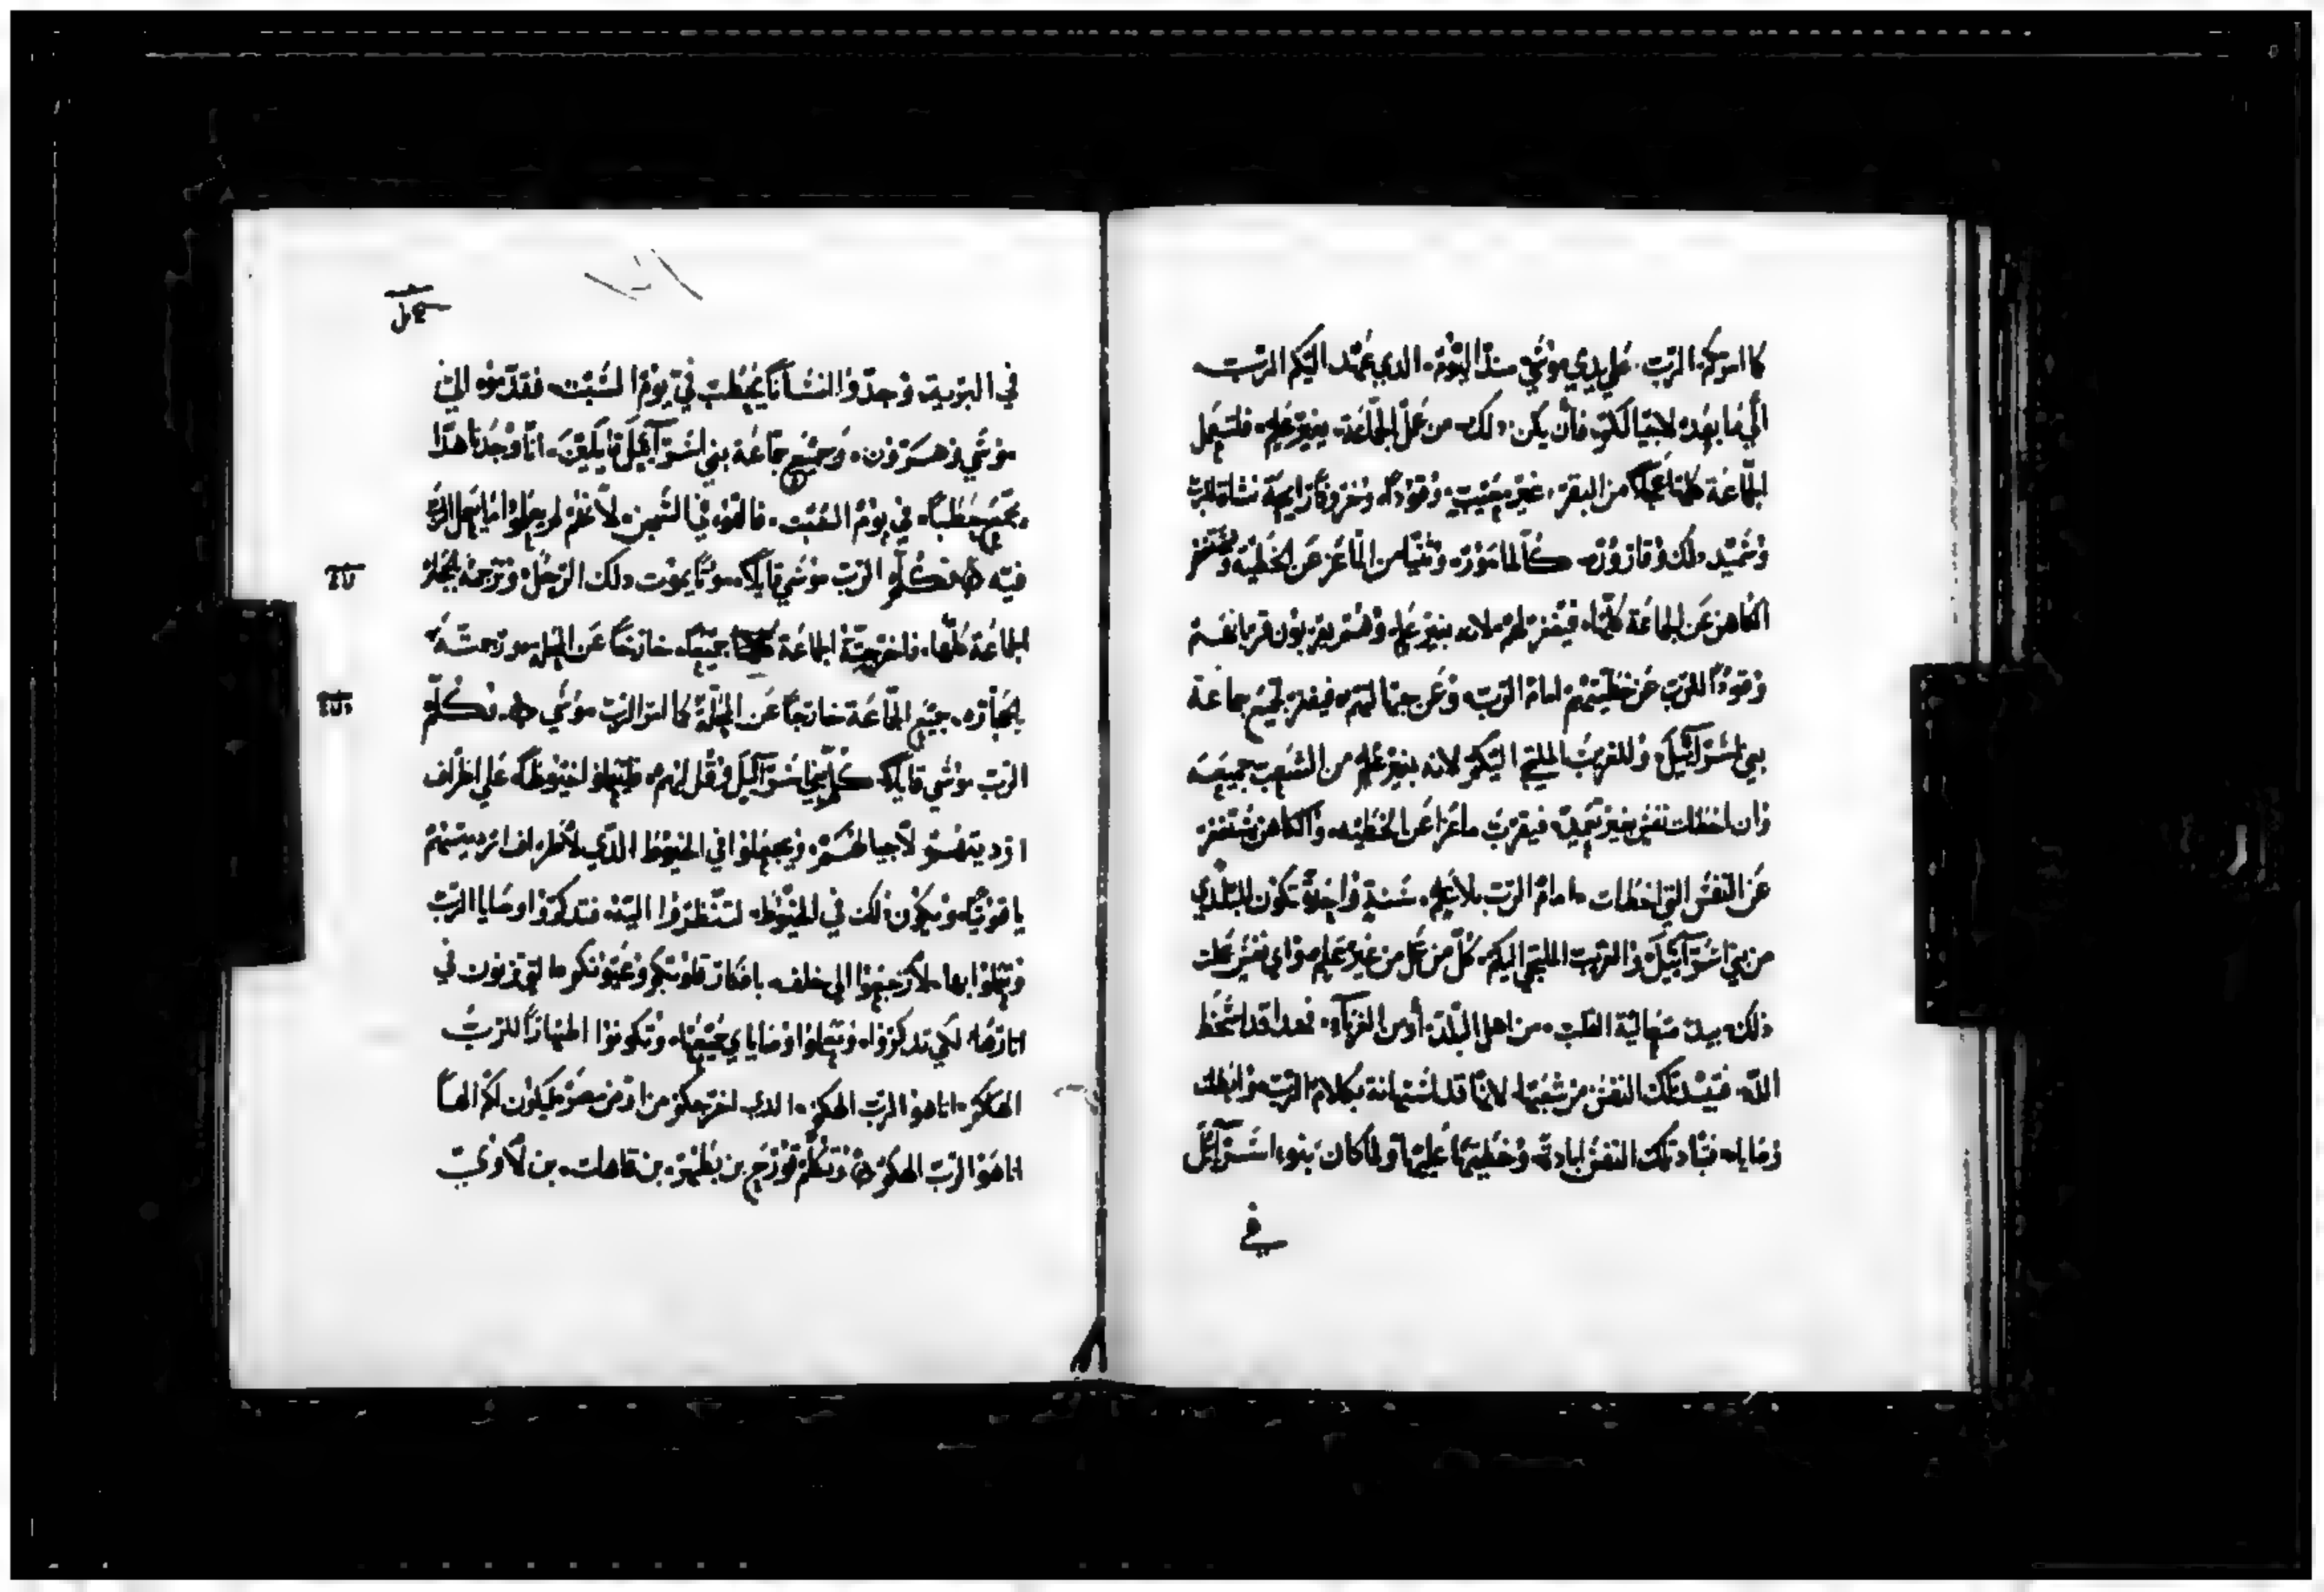 كما امركم الرب على يدي موشي منذ اليوم الدي عهد اليكم الرب
الي ما بعد لاجيالكم فان يكن دلك من عمل الجماعة بغير علم فلتعمل
الجماعة كلها عجلا من البقر غير معيب وقودا وبخورا رايحة نشاة للرب
وشميد دلك وقاروره كالماموره وتنيا من الماعز عن الخطيه ويستغفر
الكاهن عن الجماعة كلها فيغفر لهم لانه بغير علم وهم يقربون قربانهم
وقودا للرب عن خطيتهم امام الرب وعن جهالتهم فيغفر لجميع جماعة
بني اسرآئيل وللغريب الملتجي اليكم لانه بغير علم من الشعب جميعه
وان اخطات نفس بغير تعمد فيقرب ماعزا عن الخطيه والكاهن يستغفر
عن النفس التي اخطات امام الرب بلا علم سنة واحدة تكون للبلدي
من بني اسرآئيل والغريب الملتجي اليكم كل من عمل من غير علم واي نفس عملت
ذلك بيد متعالية القلب من اهل البلد أو من الغرباء فهدا قد اسخط
الله فتبيد تلك النفس من شعبها لانها قد استهانة بكلام الرب وابطلت
وصاياه فتباد تلك النفس ابادة وخطيتها عليها ولما كان بنو اسرآئيل
في
في البرية وجدوا انسانا يحتطب في يوم السبت فقدموه الي
موشي وهرون وجميع جماعة بني اسرآئيل قايلين انا وجدنا هدا
يجمع حطبا في يوم السبت فالقوه في السجن لانهم لم يعلموا ما يعمل الرب
فيه وكلم الرب موشي قايلا موتا يموت دلك الرجل وترجمه بالحجاره
الجماعة كلها فاخرجته الجماعة جميعا خارجا عن المحله ورجمته
بالحجاره جميع الجماعة خارجا عن المحلة كما امر الرب موشي وكلم
الرب موشي قايلا كلم بني اسرآئيل وقل لهم فليعملوا خيوطا علي اطراف
ارديتهم لاجيالهم ويجعلوا في الخيوط الذي لاطراف ارديتهم
ياقوتيا ويكون ذلك في الخيوط لتنظروا اليه فتدكروا وصايا الرب
وتعملوا بها لا ترجعوا الي خلف بافكار قلوبكم وعيونكم ما التي تزنون في
اثارها لكي تدكروا وتعملوا وصاياي جميعها وتكونوا اطهارا للرب
الهكم انا هو الرب الهكم الدي اخرجكم من ارض مصر ليكون لكم الها
انا هو الرب الهكم وتكلم قورح بن يصهر بن قاهات بن لاوي